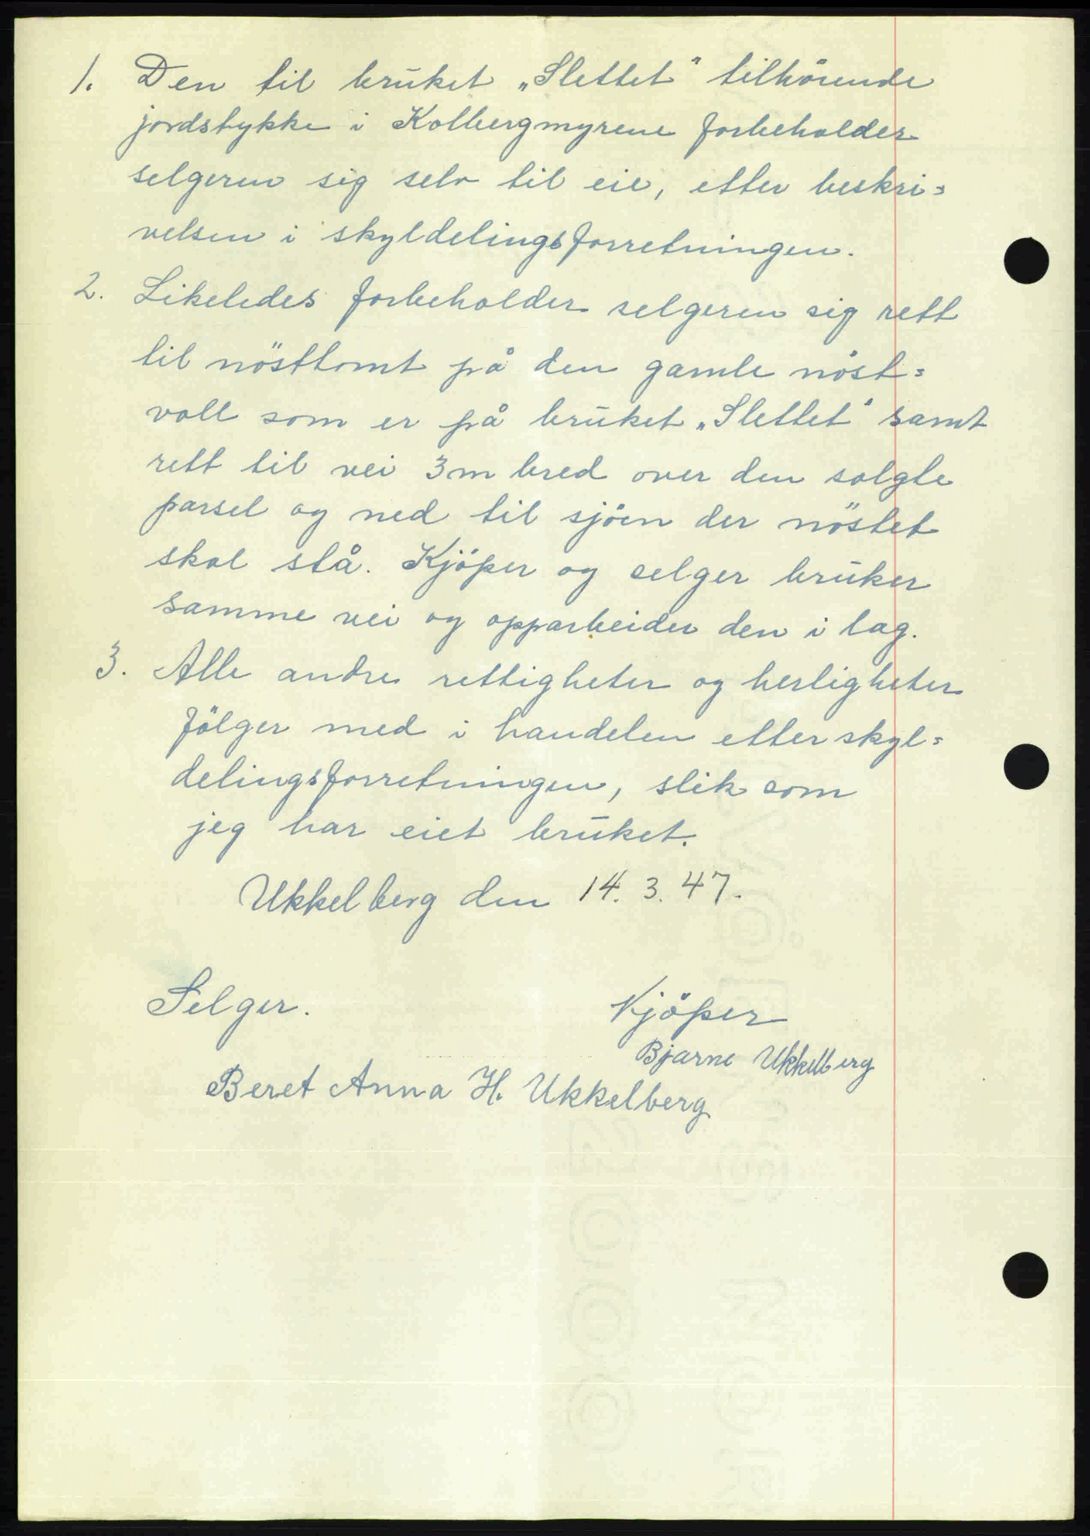 1. Den til bruket „Slettet" tilhörende
jordstykke i Kolbergmyrene forbeholder
selgeren sig selv til eie, etter beskri=
velsen i skyldelingsforretningen.
2. Likeledes forbeholder selgeren sig rett
til nösttomt på den gamle nöst=
voll som er på bruket „Slettet" samt
rett til vei 3m bred over den solgte
parsel og ned til sjöen der nöstet
skal stå. Kjöper og selger bruker
samme vei og opparbeider den i lag.
3. Alle andre rettigheter og herligheter
fölger med i handelen etter skyl=
delingsforretningen, slik som
jeg har eiet bruket.
Ukkelberg den 14.3.47.
Selger.
Kjöper
Bjarne Ukkelberg
Beret Anna H. Ukkelberg